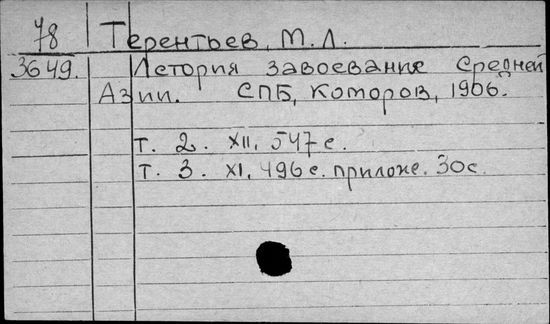 78 Терентьев, М.Л.
3649. История завоевание Средней
Азии. СПБ, Коморов, 1906.
т. 2. XII, 547 с.
т. 3. XI, 496 с. приложе. 30 с.